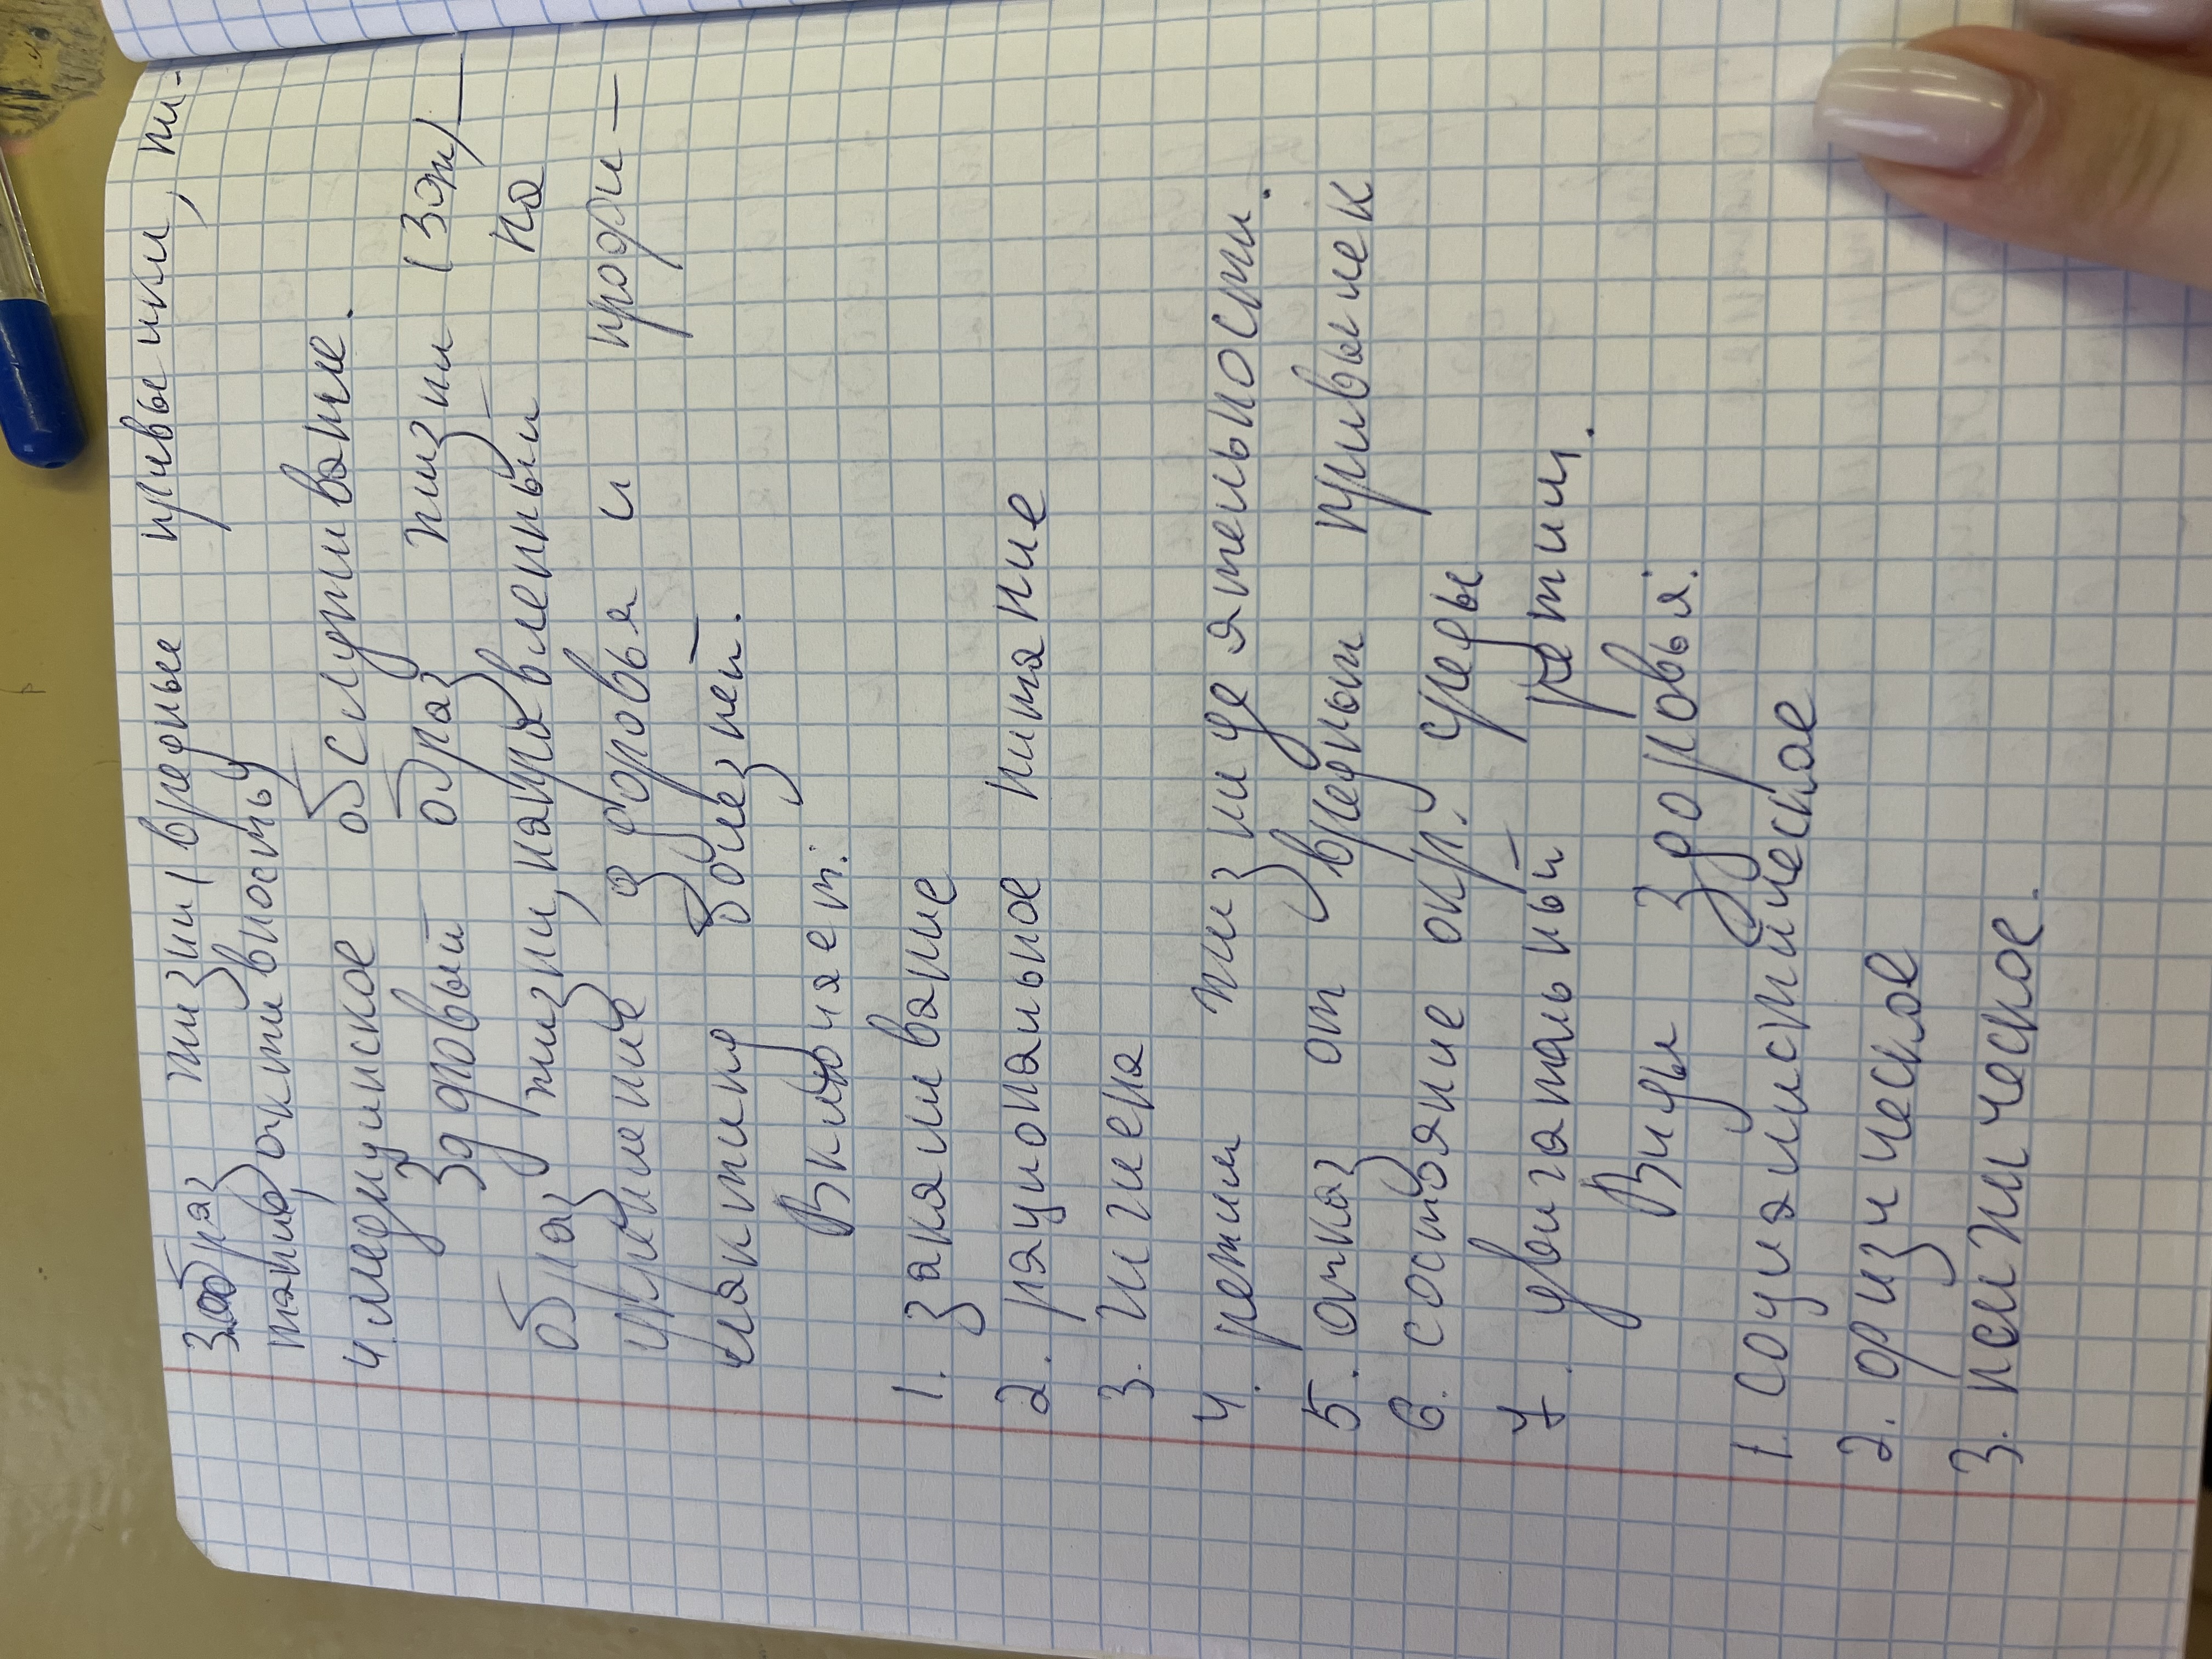 3. образ жизни (вредные привычки, пи-
тание, активность)
4. медицинское обслуживание.
Здоровый образ жизни (ЗОЖ) —
образ жизни, направленный на
укрепление здоровья и профи —
лактику болезней.
Включает:
1. закаливание
2. рациональное питание
3. гигиена
4. режим жизнедеятельности.
5. отказ от вредных привычек
6. состояние окр. среды
7. двигательный режим.
Виды здоровья:
1. социалистическое
2. физическое
3. психическое.